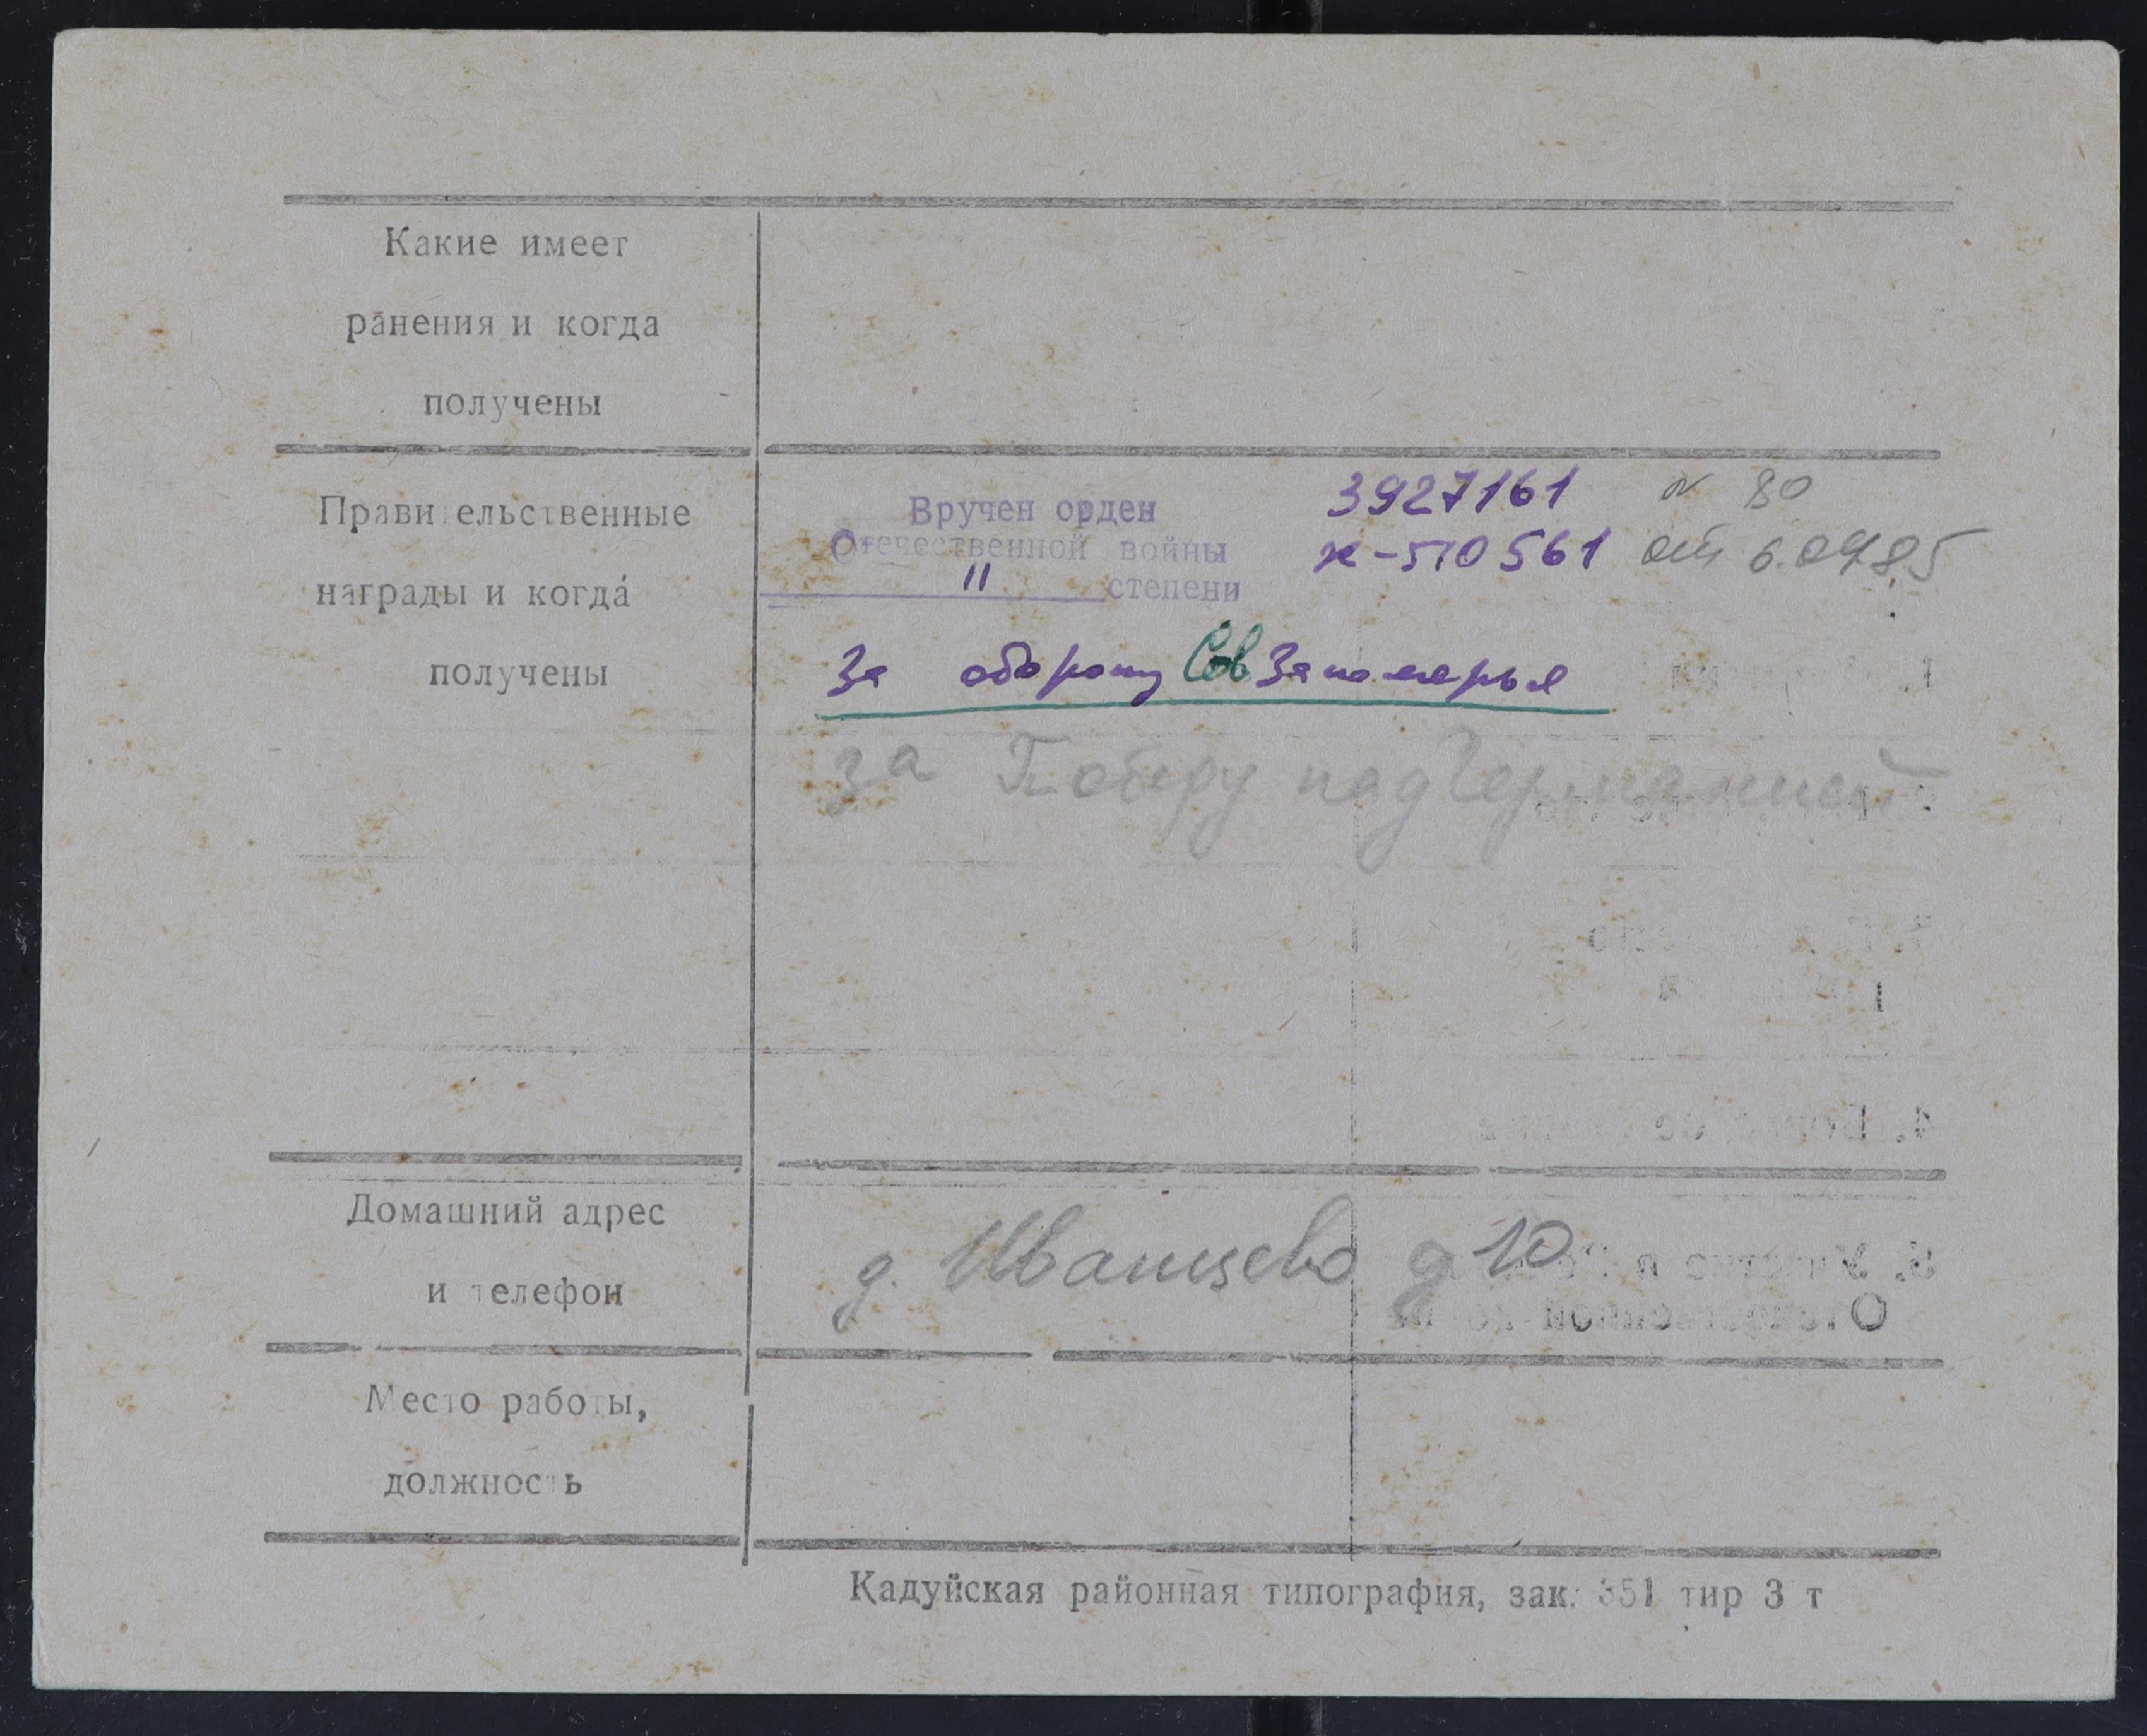 Какие имеет
ранения и когда
получены
Прави ельственные
награды и когда
получены
Вручен орден
Отечественной войны
II степени
3927161 N 80
к-510561 от 6.04.85
За оборону Сов Заполярья
за Победу над Германией
Домашний адрес
и телефон
д. Иванцево д 10
Место работы,
должность
Кадуйская районная типография, зак. 351 тир 3 т